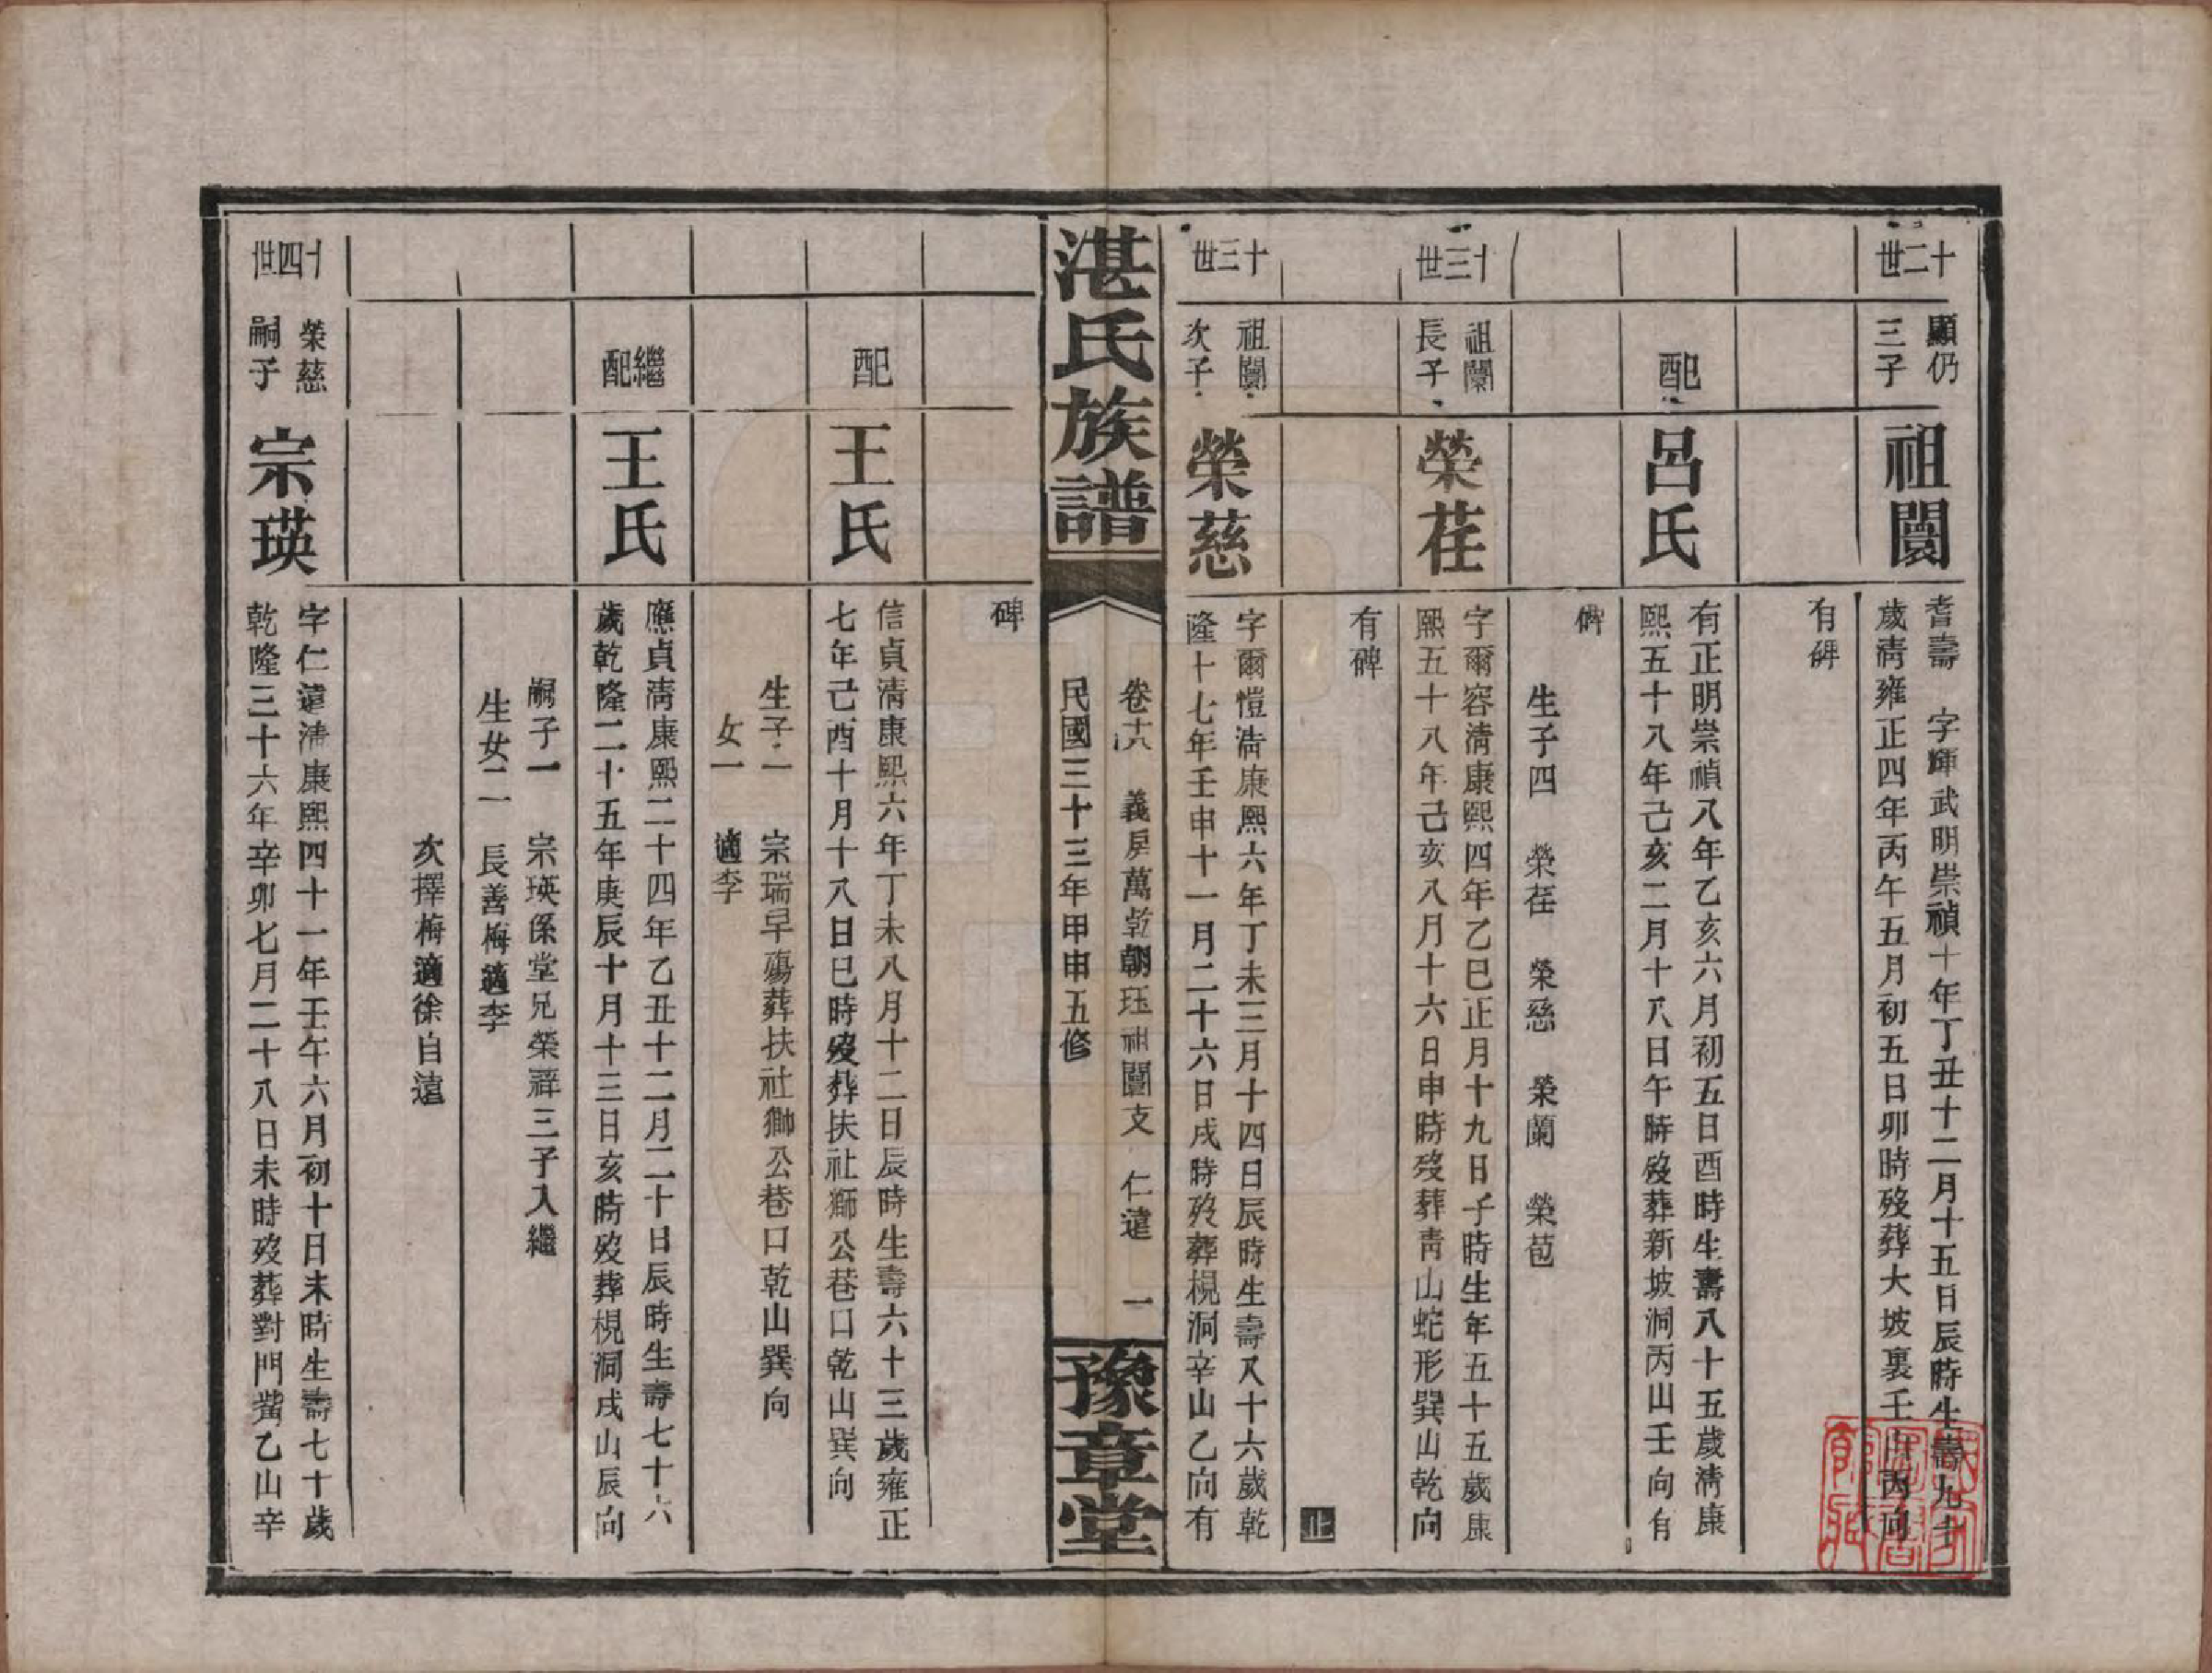 十二世
顯仍
三子
祖闓
耆壽　字輝武明崇禎十年丁丑十二月十五日辰時生壽九十
歲清雍正四年丙午五月初五日卯時歿葬大坡裏壬山丙向
有碑
配
呂氏
有正明崇禎八年乙亥六月初五日酉時生壽八十五歲清康
熙五十八年己亥二月十八日午時歿葬新坡洞丙山壬向有
碑
生子四　榮荏　榮慈　榮蘭　榮苞
十三世
祖闓
長子
榮荏
字爾容清康熙四年乙巳正月十九日子時生年五十五歲康
熙五十八年己亥八月十六日申時歿葬青山蛇形巽山乾向
有碑
止
十三世
祖闓
次子
榮慈
字爾愷清康熙六年丁未三月十四日辰時生壽八十六歲乾
隆十七年壬申十一月二十六日戌時歿葬梘洞辛山乙向有
湛氏族譜
卷十六　義房萬乾朝珏祖闓支　仁遠　一
民國三十三年甲申五修
豫章堂
碑
配
王氏
信貞清康熙六年丁未八月十二日辰時生壽六十三歲雍正
七年己酉十月十八日巳時歿葬扶社獅公巷口乾山巽向
生子一　宗瑞早殤葬扶社獅公巷口乾山巽向
女一　適李
繼配
王氏
應貞清康熙二十四年乙丑十二月二十日辰時生壽七十六
歲乾隆二十五年庚辰十月十三日亥時歿葬梘洞戌山辰向
嗣子一　宗瑛係堂兄榮祥三子入繼
生女二　長善梅適李
次擇梅適徐自遠
十四世
榮慈
嗣子
宗瑛
字仁遠清康熙四十一年壬午六月初十日未時生壽七十歲
乾隆三十六年辛卯七月二十八日未時歿葬對門嘴乙山辛